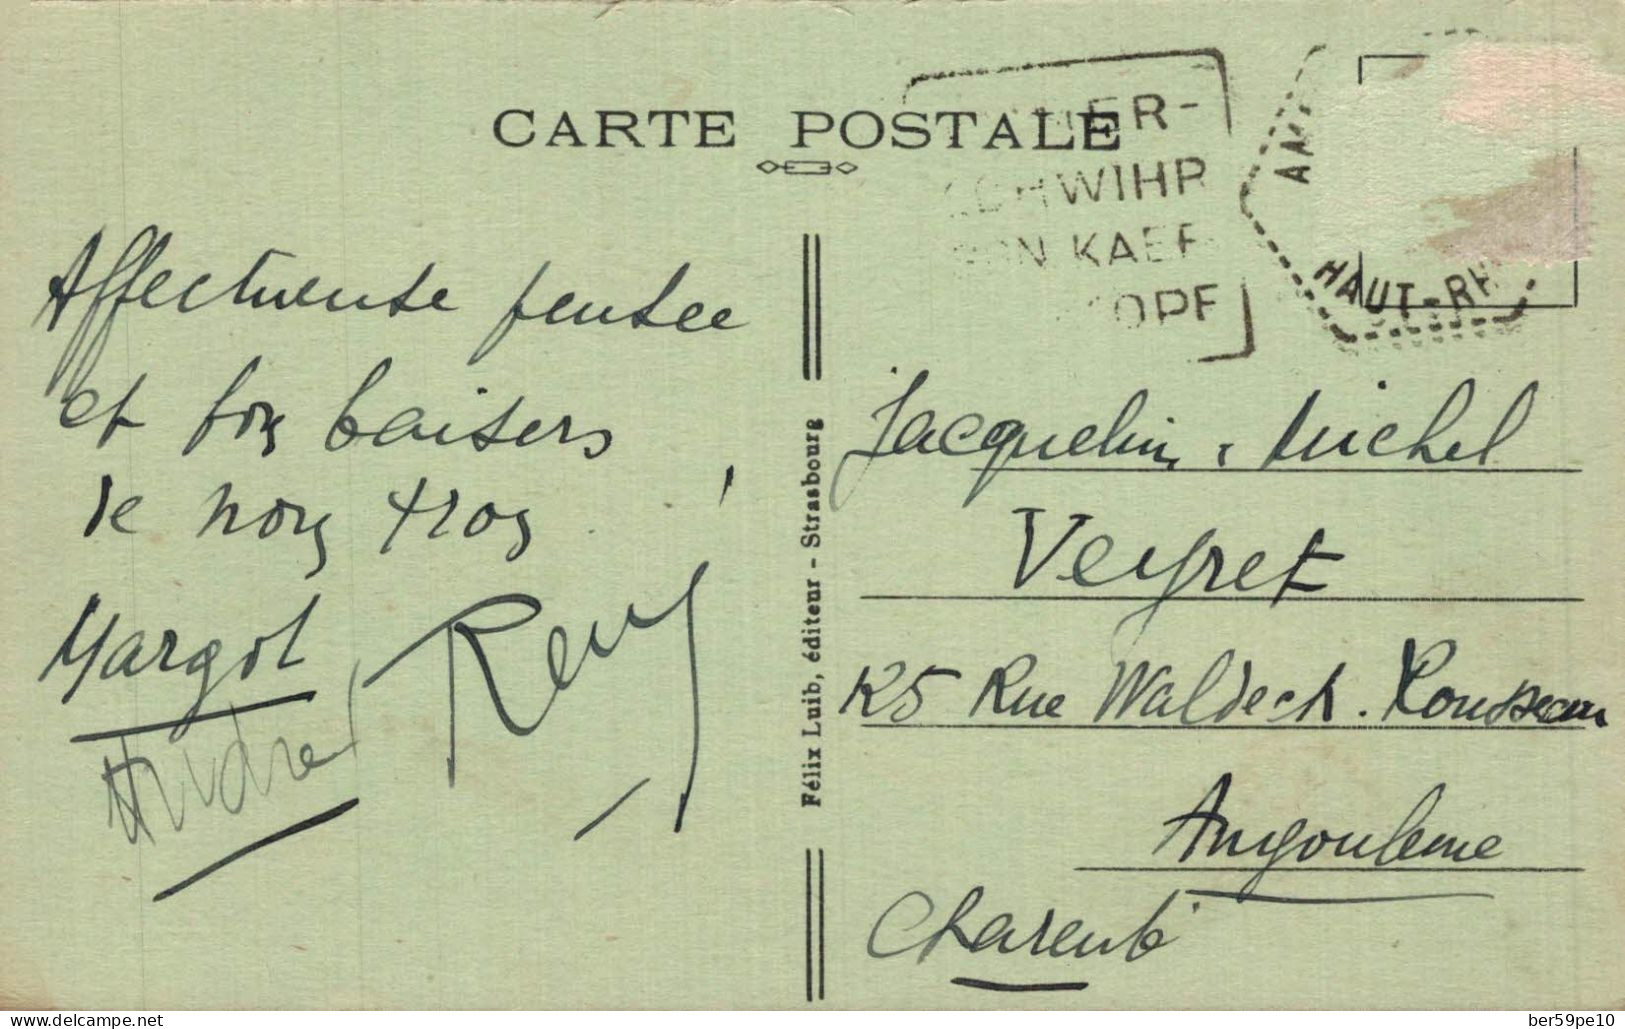 CARTE POSTALE
ER-
SCHWIHR
SON KAEF
KOPF
AM
HAUT-RH
Affectueuse pensée
et bons baisers
de nous trois
Margot
Remy
Andrée
Félix Luib, éditeur - Strasbourg
Jacqueline, Michel
Veyret
125 Rue Waldeck. Rousseau
Angouleme
Charente
delcampe.net
ber59pe10